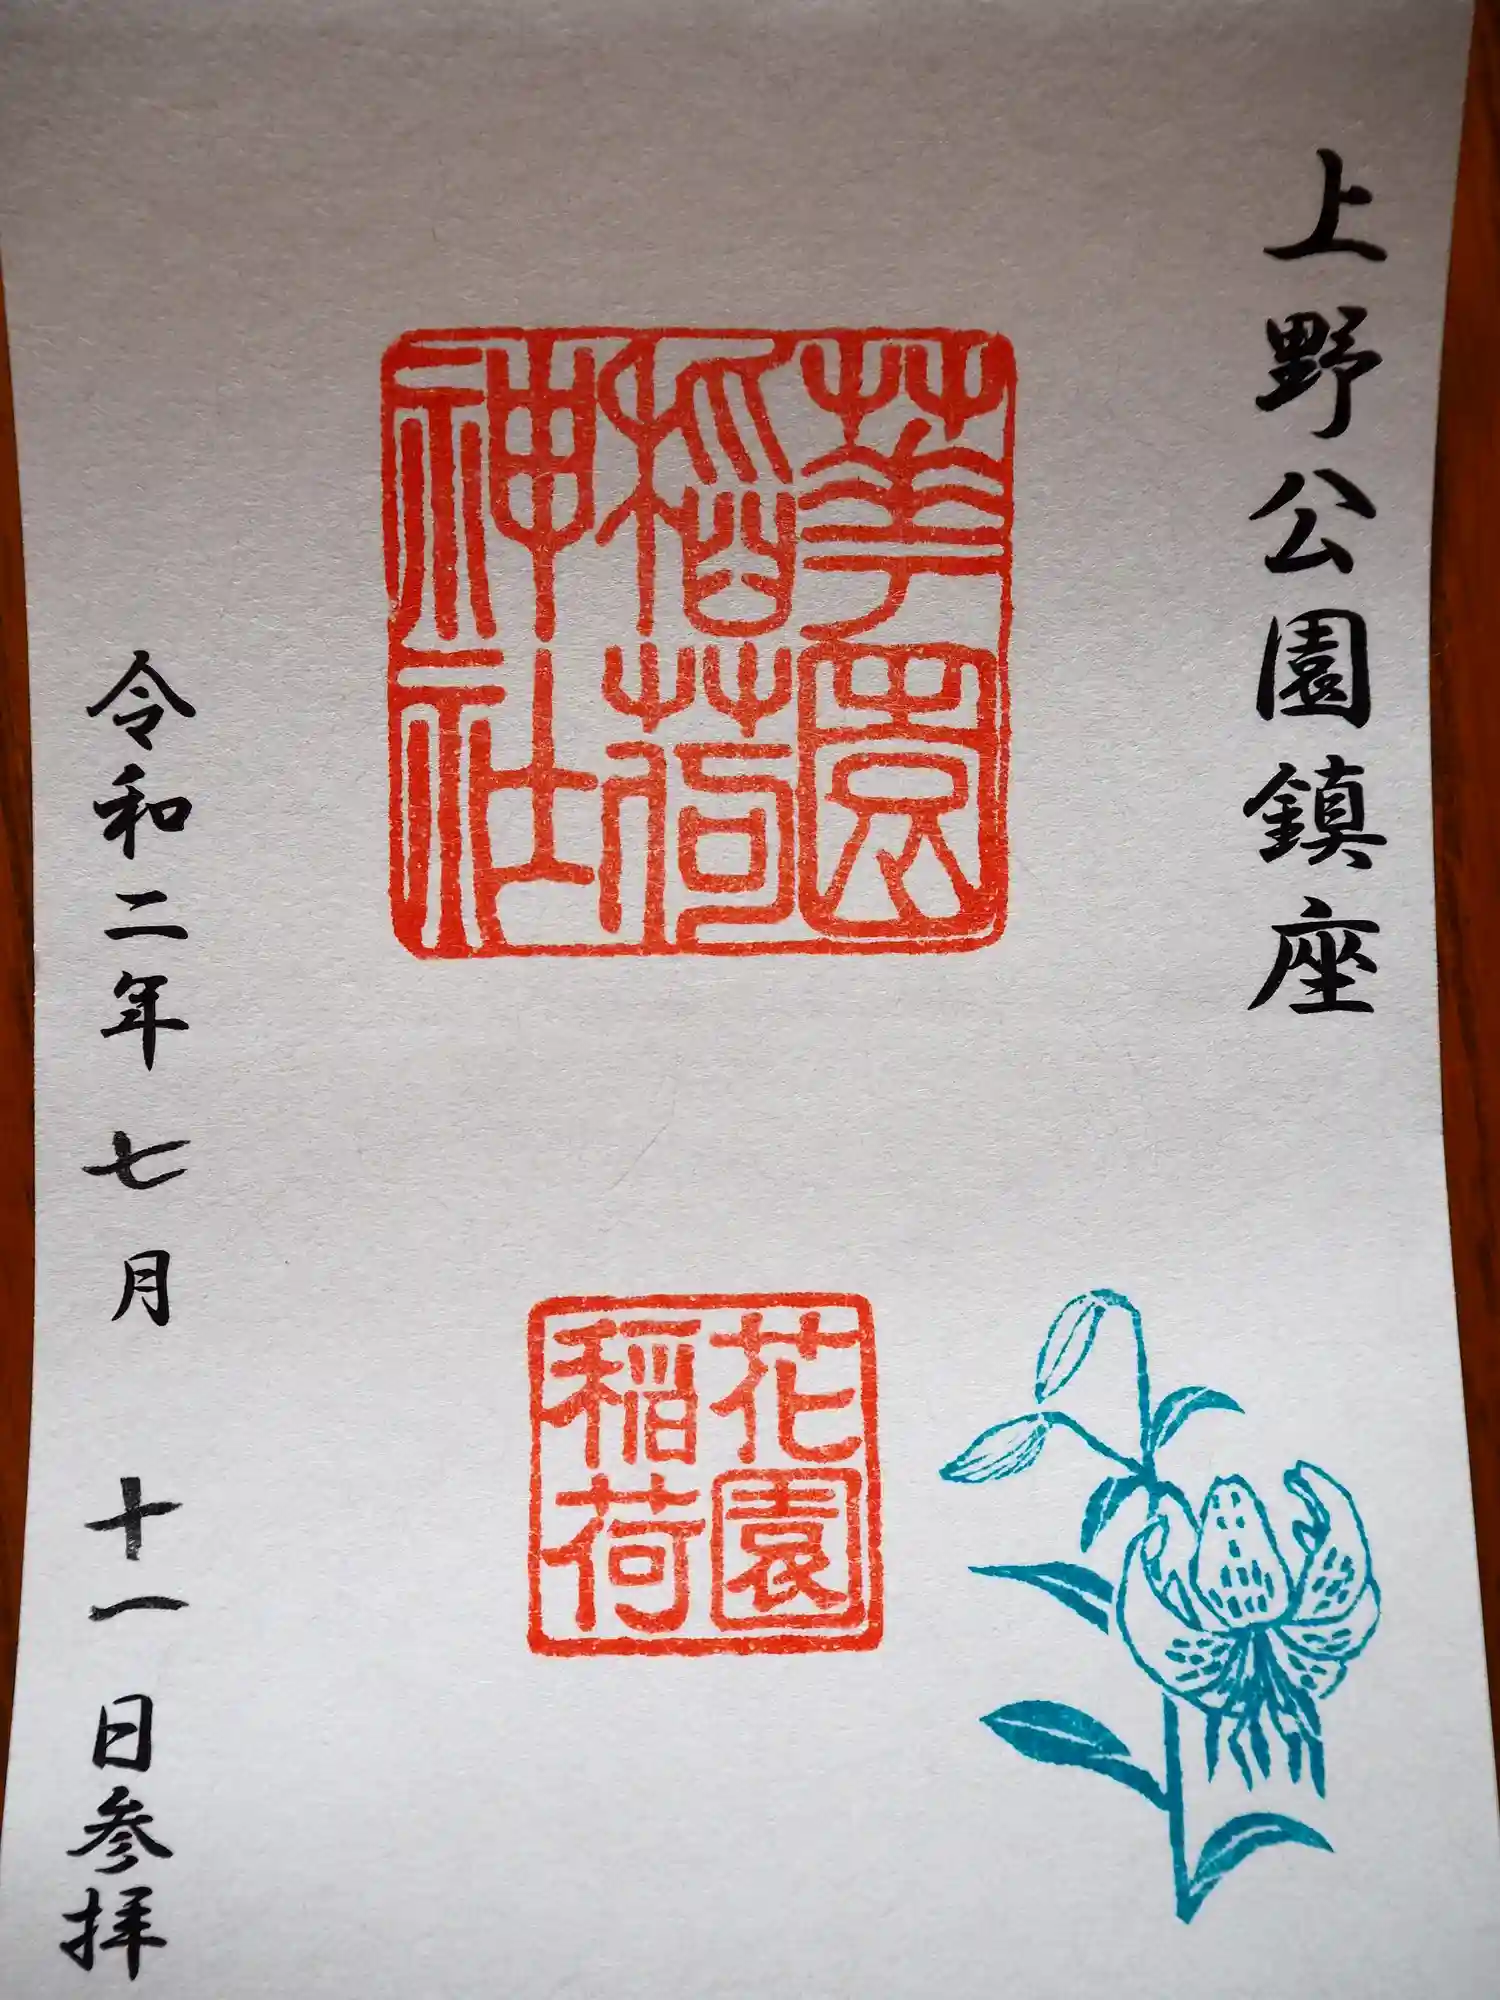 上野公園鎮座
華園稲荷神社
花園稲荷
令和二年七月十一日参拝